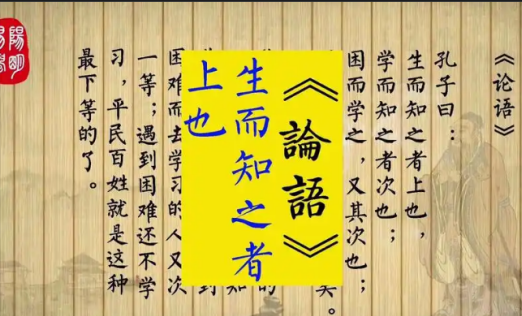 《论语》
孔子曰：
生而知之者上也，
学而知之者次也；
困而学之，又其次也；
《論語》
生而知之者
上也
困难而去学习的人又次
一等；遇到困难还不学
习，平民百姓就是这种
最下等的了。
陽明